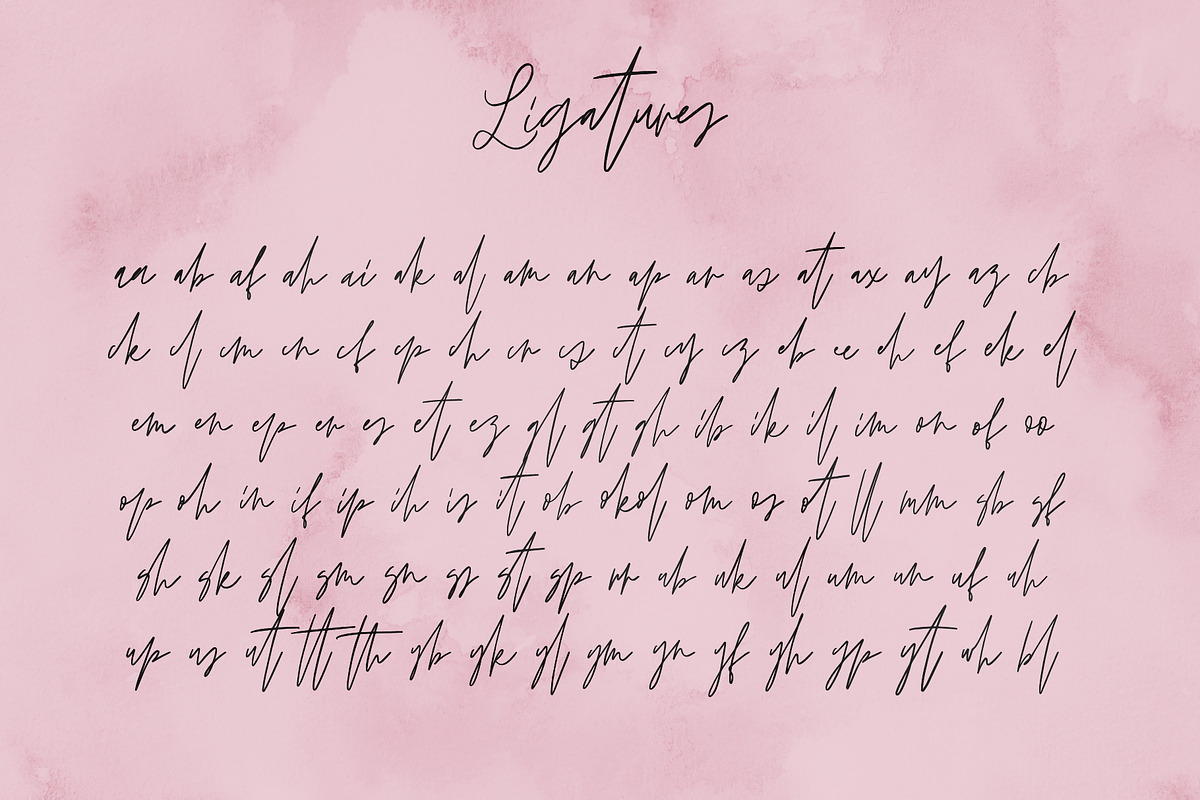 Ligatures
aa ab af ah ai ak al am an ap ar as at ax ay az cb
ck cl cm cn cf cp ch cr cs ct cy cz eb ee eh ef ek el
em en ep er es et ez gl gt gh ib ik il im on of oo
op oh in if ip ih is it ob ok ol om os ot ll mm sb sf
sh sk sl sm sn ss st sp rr ub uk ul um un uf uh
up us ut tt th yb yk yl ym yn yf yh yp yt wh bl